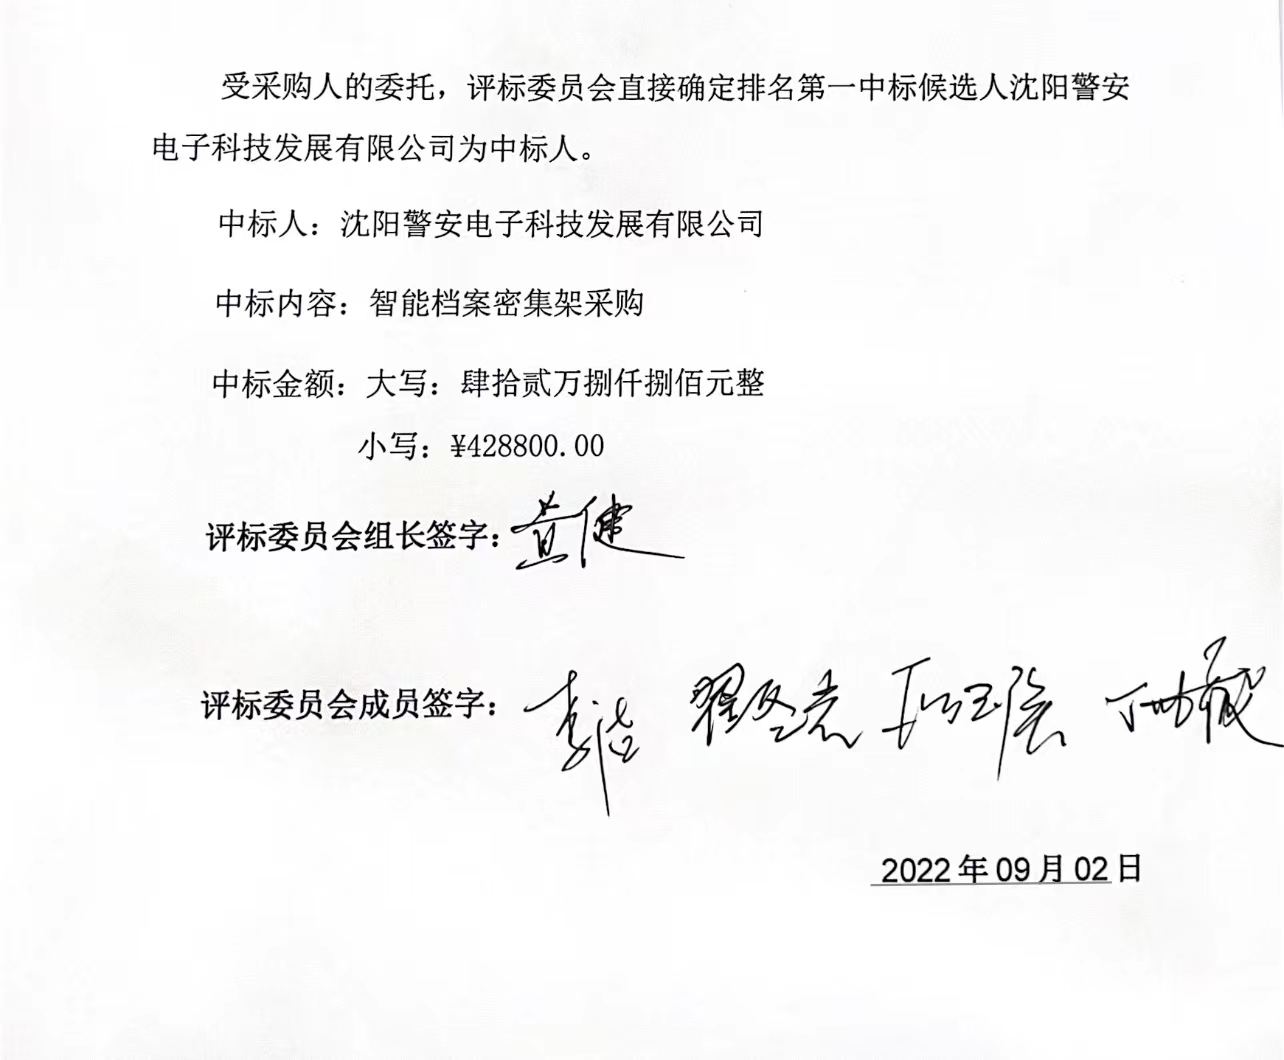 受采购人的委托，评标委员会直接确定排名第一中标候选人沈阳警安
电子科技发展有限公司为中标人。
中标人：沈阳警安电子科技发展有限公司
中标内容：智能档案密集架采购
中标金额：大写：肆拾贰万捌仟捌佰元整
小写：¥428800.00
评标委员会组长签字：黄健
评标委员会成员签字：李洁
2022年09月02日